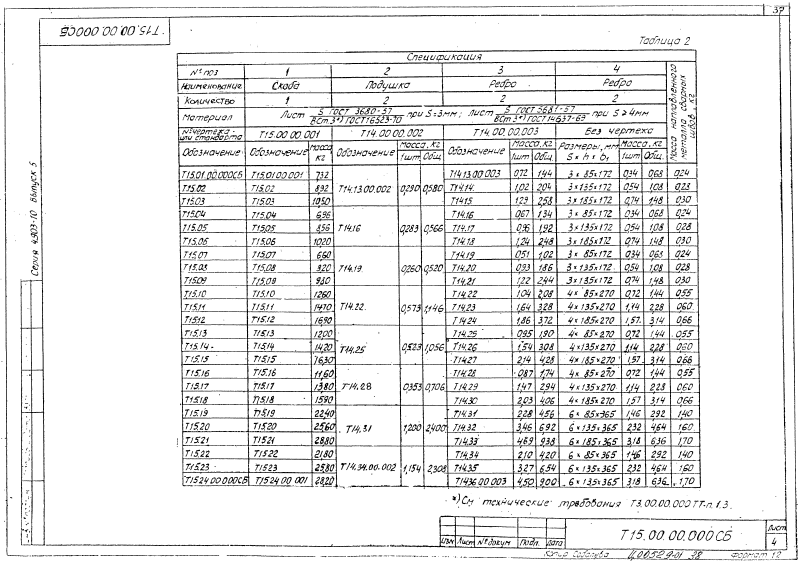 37
Т15.00.00.000СБ
Таблица 2
Спецификация
№ поз 1 2 3 4
Наименование Скоба Подушка Ребро Ребро
Количество 1 2 2 2
Материал Лист S ГОСТ 3680-57 / ВСт.3*) ГОСТ 16523-70 при S=3мм; Лист S ГОСТ 5681-57 / ВСт.3*) ГОСТ 14637-69 при S≥4мм
Масса наплавленного металла сварных швов, кг
№ чертежа или стандарта Т15.00.00.001 Т14.00.00.002 Т14.00.00.003 Без чертежа
Обозначение Обозначение Масса кг Обозначение Масса, кг 1шт Общ. Обозначение Масса, кг 1шт Общ. Размеры, мм S × h × b₁ Масса, кг 1шт Общ.
Т15.01.00.000СБ Т15.01.00.001 7,32 Т14.13.00.003 0,72 1,44 3 × 85×172 0,34 0,68 0,24
Т15.02 Т15.02 8,92 Т14.13.00.002 0,290 0,580 Т14.14. 1,02 2,04 3 × 135×172 0,54 1,08 0,28
Т15.03 Т15.03 10,50 Т14.15 1,29 2,58 3 × 185×172 0,74 1,48 0,30
Т15.04 Т15.04 6,96 Т14.16 0,67 1,34 3 × 85×172 0,34 0,68 0,24
Т15.05 Т15.05 8,56 Т14.16 0,283 0,566 Т14.17 0,96 1,92 3 × 135×172 0,54 1,08 0,28
Т15.06 Т15.06 10,20 Т14.18 1,24 2,48 3 × 185×172 0,74 1,48 0,30
Т15.07 Т15.07 6,60 Т14.19 0,51 1,02 3 × 85×172 0,34 0,68 0,24
Т15.08 Т15.08 8,20 Т14.19. 0,260 0,520 Т14.20 0,93 1,86 3 × 135×172 0,54 1,08 0,28
Т15.09 Т15.09 9,80 Т14.21 1,22 2,44 3 × 185×172 0,74 1,48 0,30
Т15.10 Т15.10 12,60 Т14.22 1,04 2,08 4 × 85×270 0,72 1,44 0,55
Т15.11 Т15.11 14,70 Т14.22. 0,573 1,146 Т14.23 1,64 3,28 4 × 135×270 1,14 2,28 0,60
Т15.12 Т15.12 16,90 Т14.24 1,86 3,72 4 × 185×270 1,57 3,14 0,66
Т15.13 Т15.13 12,00 Т14.25 0,95 1,90 4 × 85×270 0,72 1,44 0,55
Т15.14 Т15.14 14,20 Т14.25 0,523 1,056 Т14.26 1,54 3,08 4 × 135×270 1,14 2,28 0,60
Т15.15 Т15.15 16,30 Т14.27 2,14 4,28 4 × 185×270 1,57 3,14 0,66
Т15.16 Т15.16 11,60 Т14.28 0,87 1,74 4 × 85×270 0,72 1,44 0,55
Т15.17 Т15.17 13,80 Т14.28 0,353 0,706 Т14.29 1,47 2,94 4 × 135×270 1,14 2,28 0,60
Т15.18 Т15.18 15,90 Т14.30 2,03 4,06 4 × 185×270 1,57 3,14 0,66
Т15.19 Т15.19 22,40 Т14.31 2,28 4,56 6 × 85×365 1,46 2,92 1,40
Т15.20 Т15.20 25,60 Т14.31 1,200 2,400 Т14.32 3,46 6,92 6 × 135×365 2,32 4,64 1,60
Т15.21 Т15.21 28,80 Т14.33 4,69 9,38 6 × 185×365 3,18 6,36 1,70
Т15.22 Т15.22 21,80 Т14.34 2,10 4,20 6 × 85×365 1,46 2,92 1,40
Т15.23 Т15.23 25,80 Т14.34.00.002 1,154 2,308 Т14.35 3,27 6,54 6 × 135×365 2,32 4,64 1,60
Т15.24.00.000СБ Т15.24.00.001 28,20 Т14.36.00.003 4,50 9,00 6 × 135×365 3,18 6,36 1,70
*) См технические требования Т3.00.00.000 ТТ-п.1.3.
Серия 4.903-10 Выпуск 5
Изм Лист № докум Подп. Дата
Т15.00.00.000СБ
Лист
4
Копир
Ц00529-01 38
Формат 12